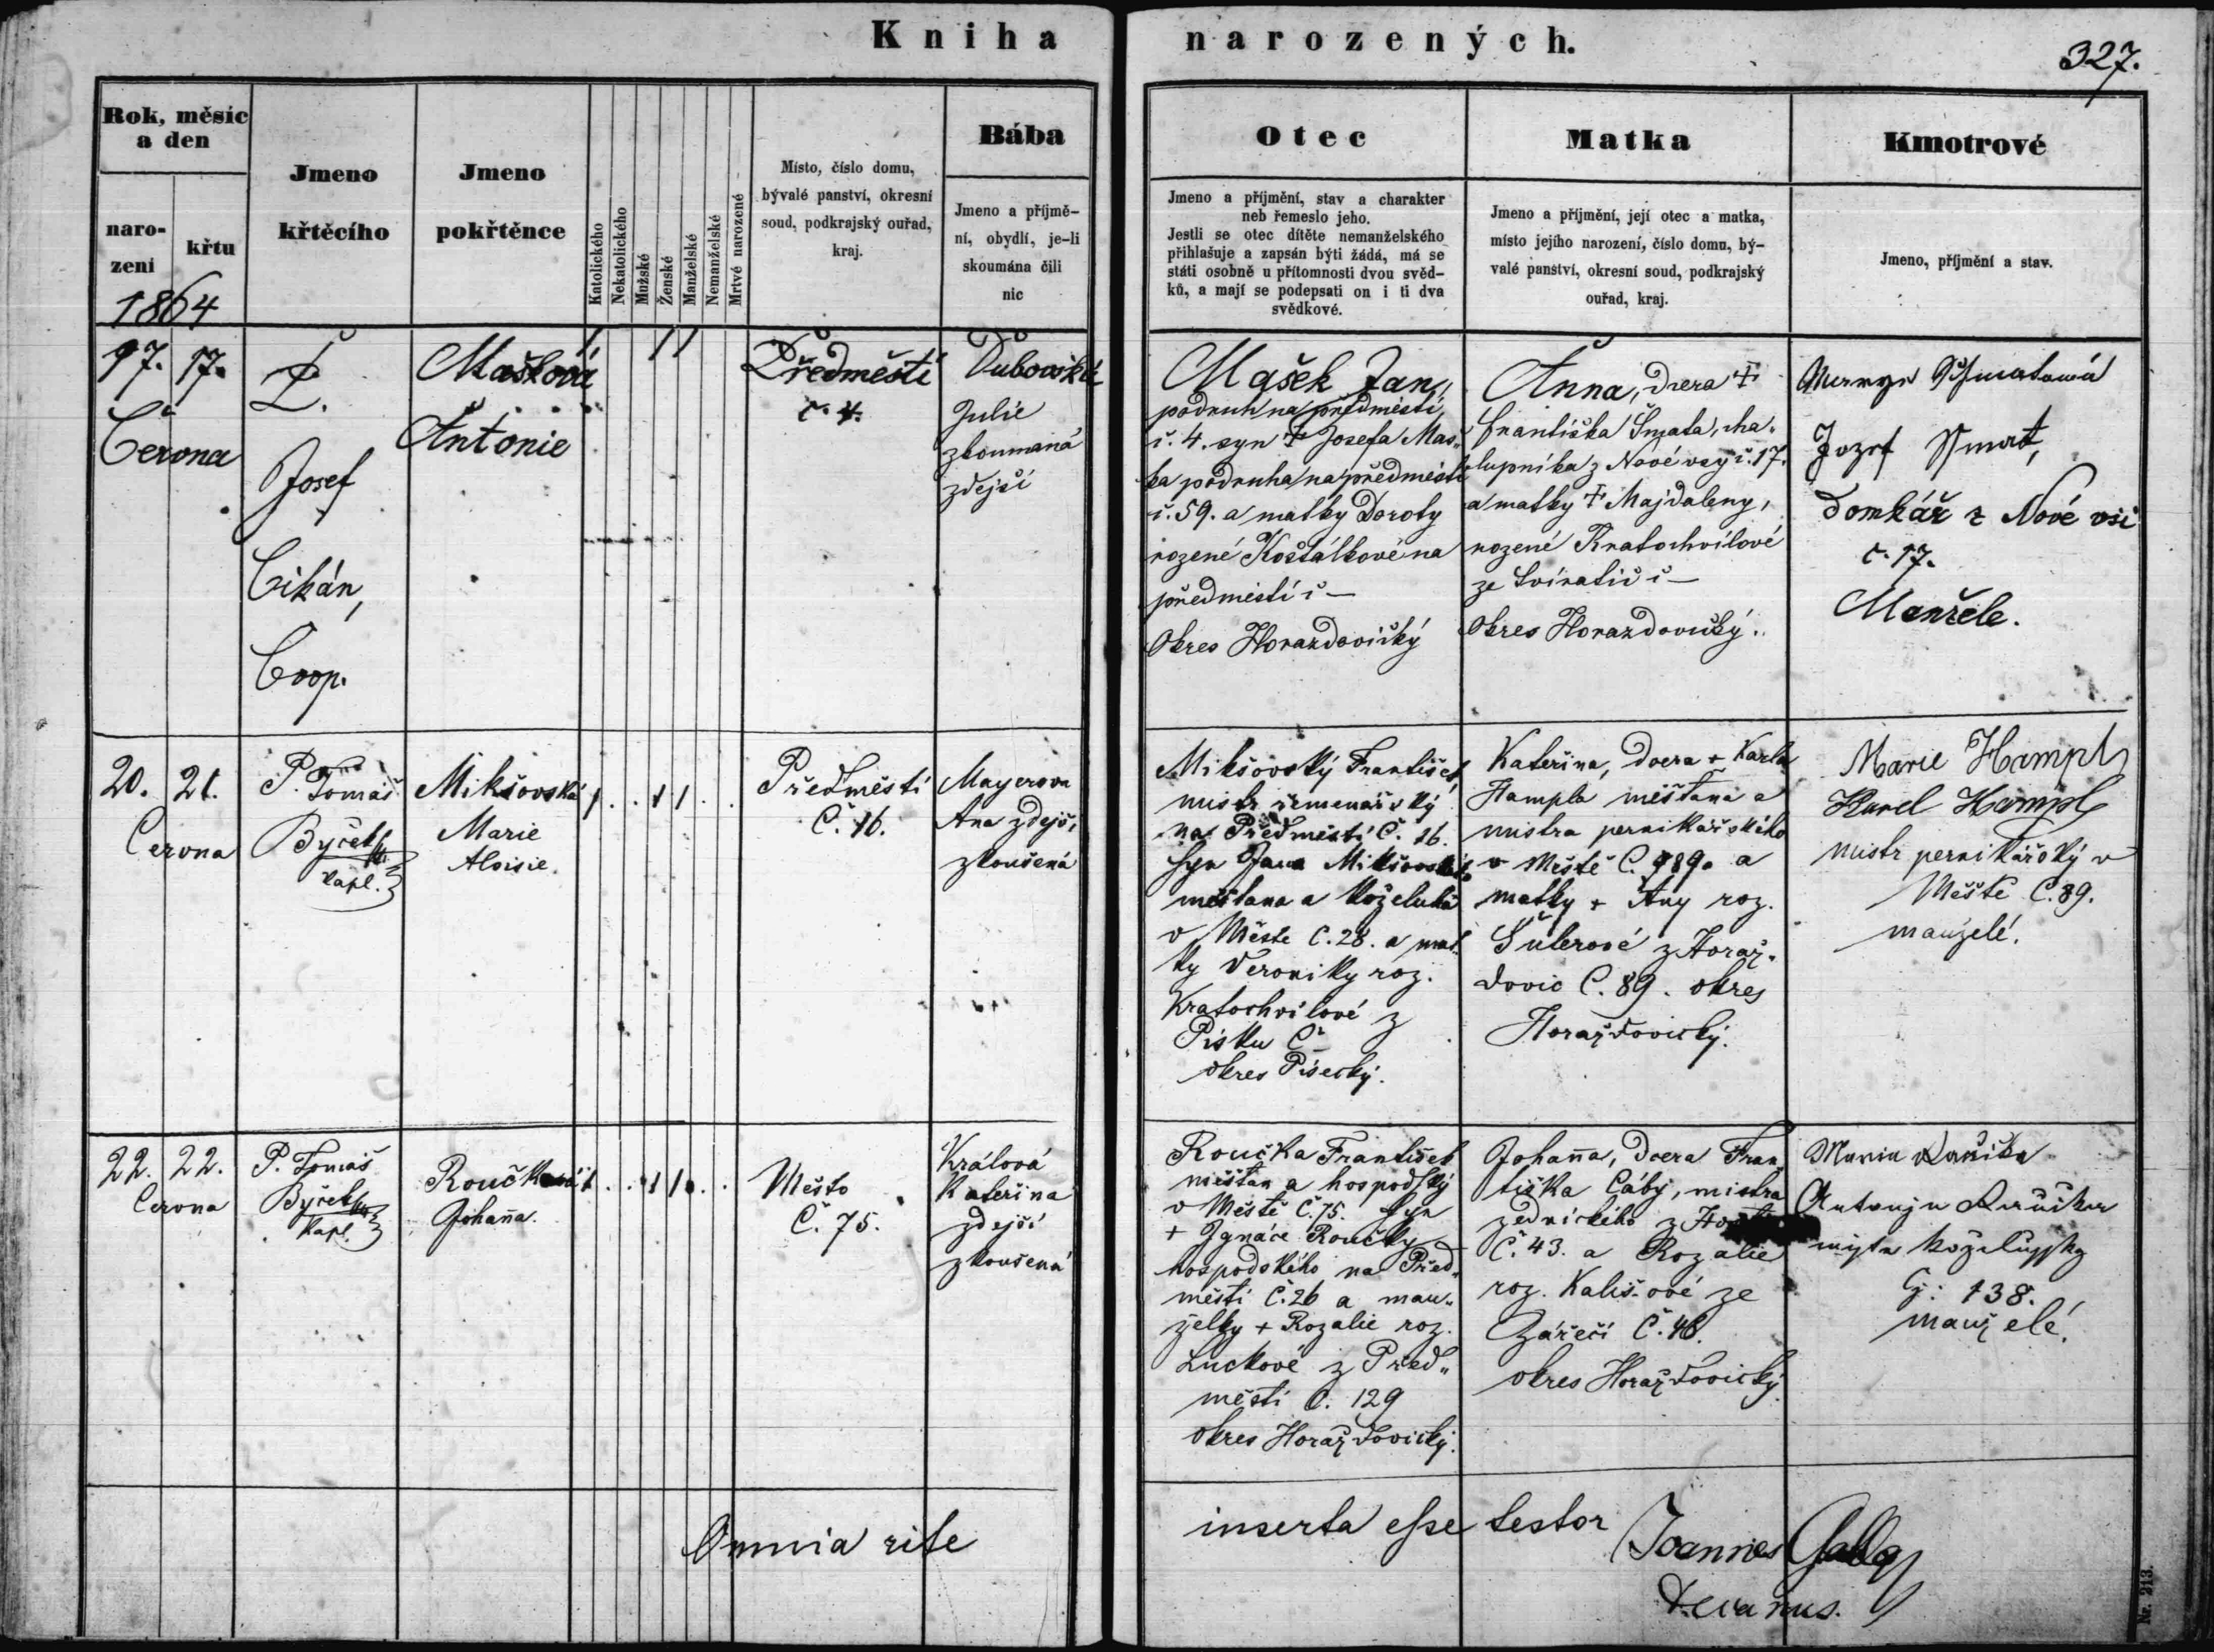 Kniha narozených.
327.
Rok, měsíc
a den
naro-
zení
křtu
1864
Jmeno
křtěcího
Jmeno
pokřtěnce
Katolického
Nekatolického
Mužské
Ženské
Manželské
Nemanželské
Mrtvě narozené
Místo, číslo domu,
bývalé panství, okresní
soud, podkrajský ouřad,
kraj.
Bába
Jmeno a příjmě-
ní, obydlí, je-li
skoumána čili
nic
Otec
Jmeno a příjmění, stav a charakter
neb řemeslo jeho.
Jestli se otec dítěte nemanželského
přihlašuje a zapsán býti žádá, má se
státi osobně u přítomnosti dvou svěd-
ků, a mají se podepsati on i ti dva
svědkové.
Matka
Jmeno a příjmění, její otec a matka,
místo jejího narození, číslo domu, bý-
valé panství, okresní soud, podkrajský
ouřad, kraj.
Kmotrové
Jmeno, příjmění a stav.
17. 17.
Června
P.
Josef
Cikán,
Coop.
Mašková
Antonie
1 1 1
Předměstí
č. 4.
Dubovská
Julie
zkoumaná
zdejší
Mašek Jan,
podruh na předměstí,
č. 4. syn † Josefa Maš-
ka podruha na předměstí
č. 59. a matky Doroty
rozené Košťálkové na
předměstí č —
Okres Horazdovický
Anna, dcera †
Františka Šmata, cha-
lupníka z Nové vsy č. 17.
a matky † Majdaleny,
rozené Kratochvílové
ze Svíratic č —
Okres Horazdovický.
Jozef
Domkář z Nové vsi
č. 17.
Manžele.
20. 21.
Června
P. Tomáš
Byček
kapl.
Mikšovská
Marie
Aloisie.
1 . . 1 1 . .
Předměstí
Č. 16.
Mayerova
Ana zdejší
zkoušená
Mikšovský František
mistr řemenářský
na Předměstí Č. 16.
syn Jana Mikšovského
měšťana a koželuha
v Měste Č. 28. a mat-
ky Veroniky roz.
Kratochvílové z
Písku Č —
okres Písecký.
Kateřina, dcera + Karla
Hampla měšťana a
mistra pernikářského
v Městě Č. 89. a
matky + Any roz.
Šulerové z Horaž-
dovic Č. 89. okres
Horažďovický.
Marie Hampl
Karel Hampl
mistr pernikářský v
Městě Č. 89.
manželé.
22. 22.
Června
P. Tomáš
Byček
kapl.
Roučková
Johanna.
1 . . 1 1 . .
Město
Č. 75.
Králová
Kateřina
zdejší
zkoušená
Roučka František
měšťan a hospodský
v Městě Č. 75. syn
+ Ignáce Roučky
hospodského na Před-
městí Č. 26 a man-
želky + Rozalie roz.
Luckové z Před-
městí Č. 129
okres Horažďovický.
Johanna, dcera Fran-
tiška Cáby, mistra
zednického z
Č. 43. a Rozalie
roz. Kališ-ové ze
Zářečí Č. 46.
okres Horažďovický
Maria Ručička
Antonjn Ručička
Čj: 138.
manželé.
Omnia rite inserta esse testor
Joannes
Decanus.
Nr. 213.